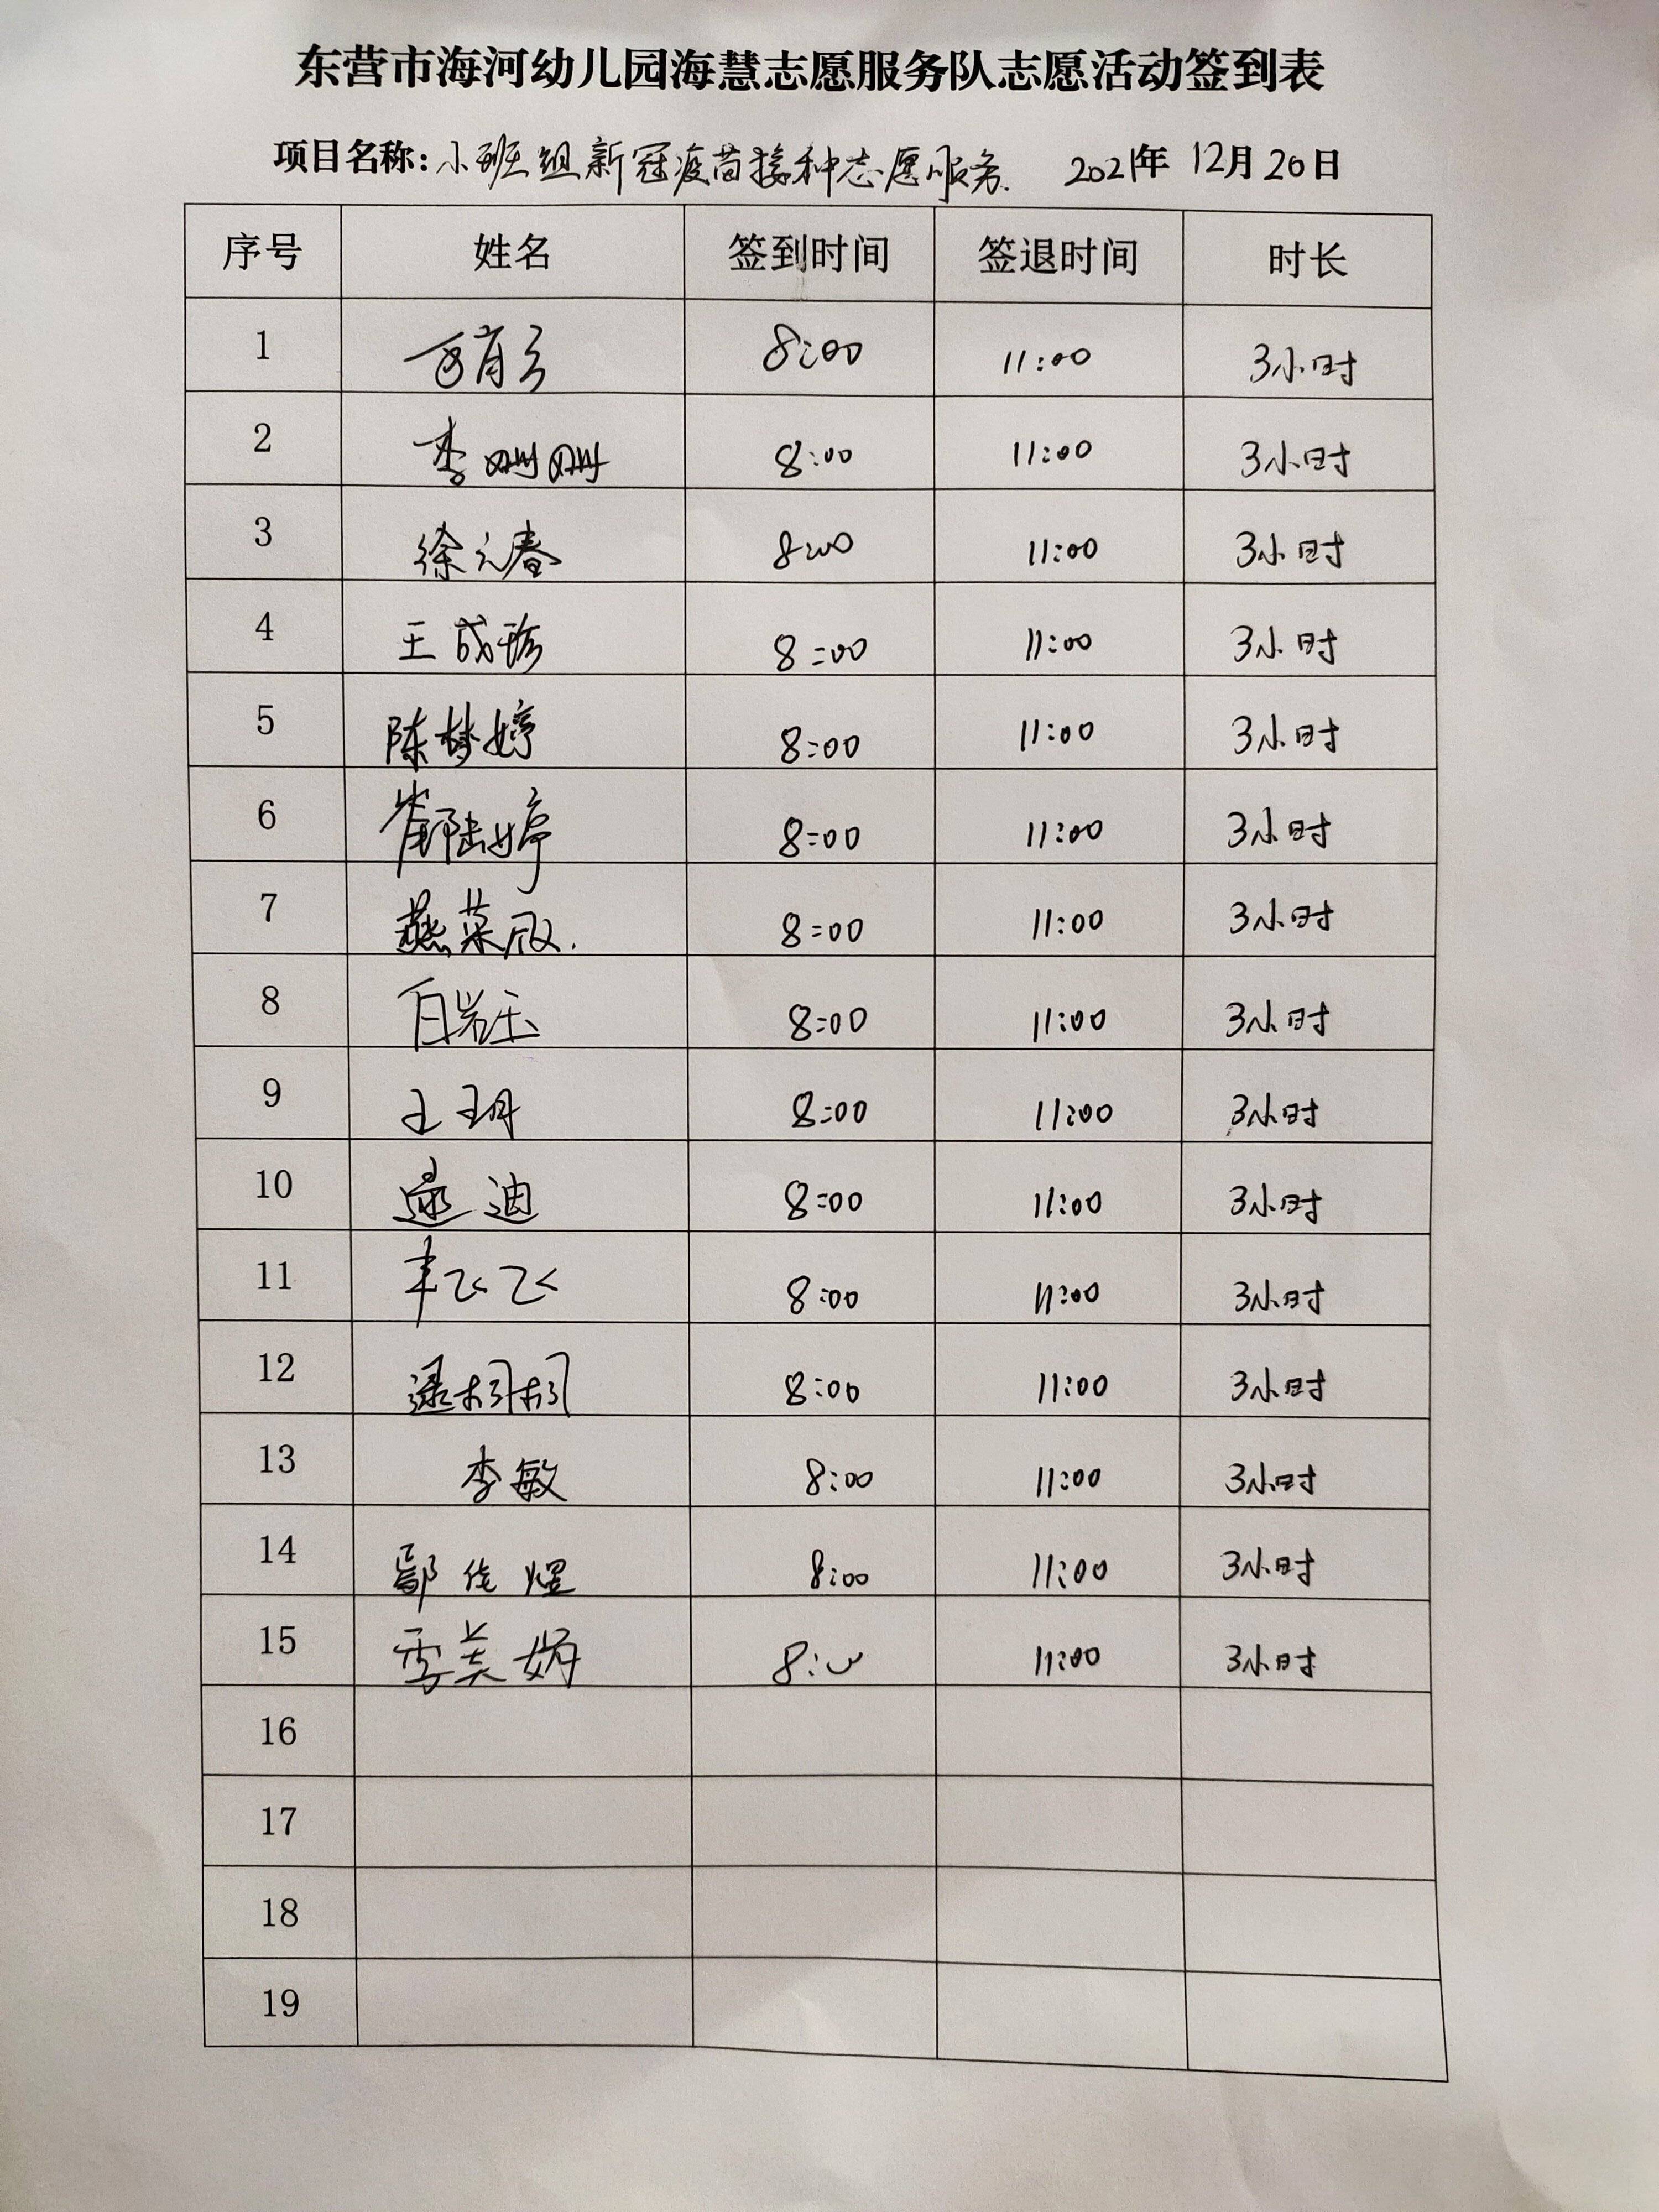 东营市海河幼儿园海慧志愿服务队志愿活动签到表
项目名称：小班组新冠疫苗接种志愿服务. 2021年 12月20日
序号 姓名 签到时间 签退时间 时长
1 8:00 11:00 3小时
2 李姗姗 8:00 11:00 3小时
3 徐元春 8:00 11:00 3小时
4 王成珍 8:00 11:00 3小时
5 陈梦婷 8:00 11:00 3小时
6 崔陆婷 8:00 11:00 3小时
7 燕菜 8:00 11:00 3小时
8 白岩玉 8:00 11:00 3小时
9 王玥 8:00 11:00 3小时
10 迪 8:00 11:00 3小时
11 丰飞飞 8:00 11:00 3小时
12 逯 8:00 11:00 3小时
13 李敏 8:00 11:00 3小时
14 鄢佳煜 8:00 11:00 3小时
15 李美娟 8:00 11:00 3小时
16
17
18
19